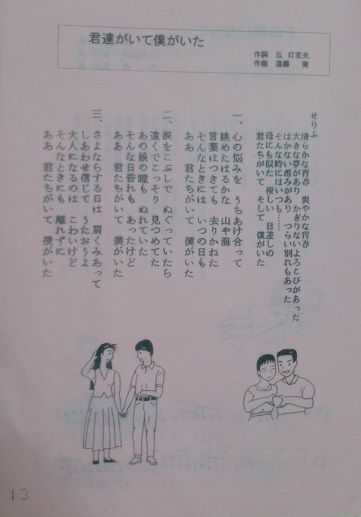 君達がいて僕がいた
作詞 丘 灯至夫
作曲 遠藤 実
せりふ
清らかな青春 爽やかな青春
大きな夢があり かぎりないよろこびがあった
はかない希みがあり つらい別れもあった
そんな時にはいつも……
母にも似た 優しい 目差しの
君たちがいて そして 僕がいた
一、心の悩みを うちあけ合って
眺めたはるかな 山や海
言葉はつきても 去りかねた
そんなときには いつの日も
ああ 君たちがいて 僕がいた
二、涙をこぶしで ぬぐっていたら
遠くでこっそり 見つめてた
あの娘の瞳も ぬれていた
そんな日昏れも あったけど
ああ 君たちがいて 僕がいた
三、さよならする日は 肩くみあって
しあわせ信じて うたおうよ
大人になるのは こわいけど
そんなときにも 離れずに
ああ 君たちがいて 僕がいた
13